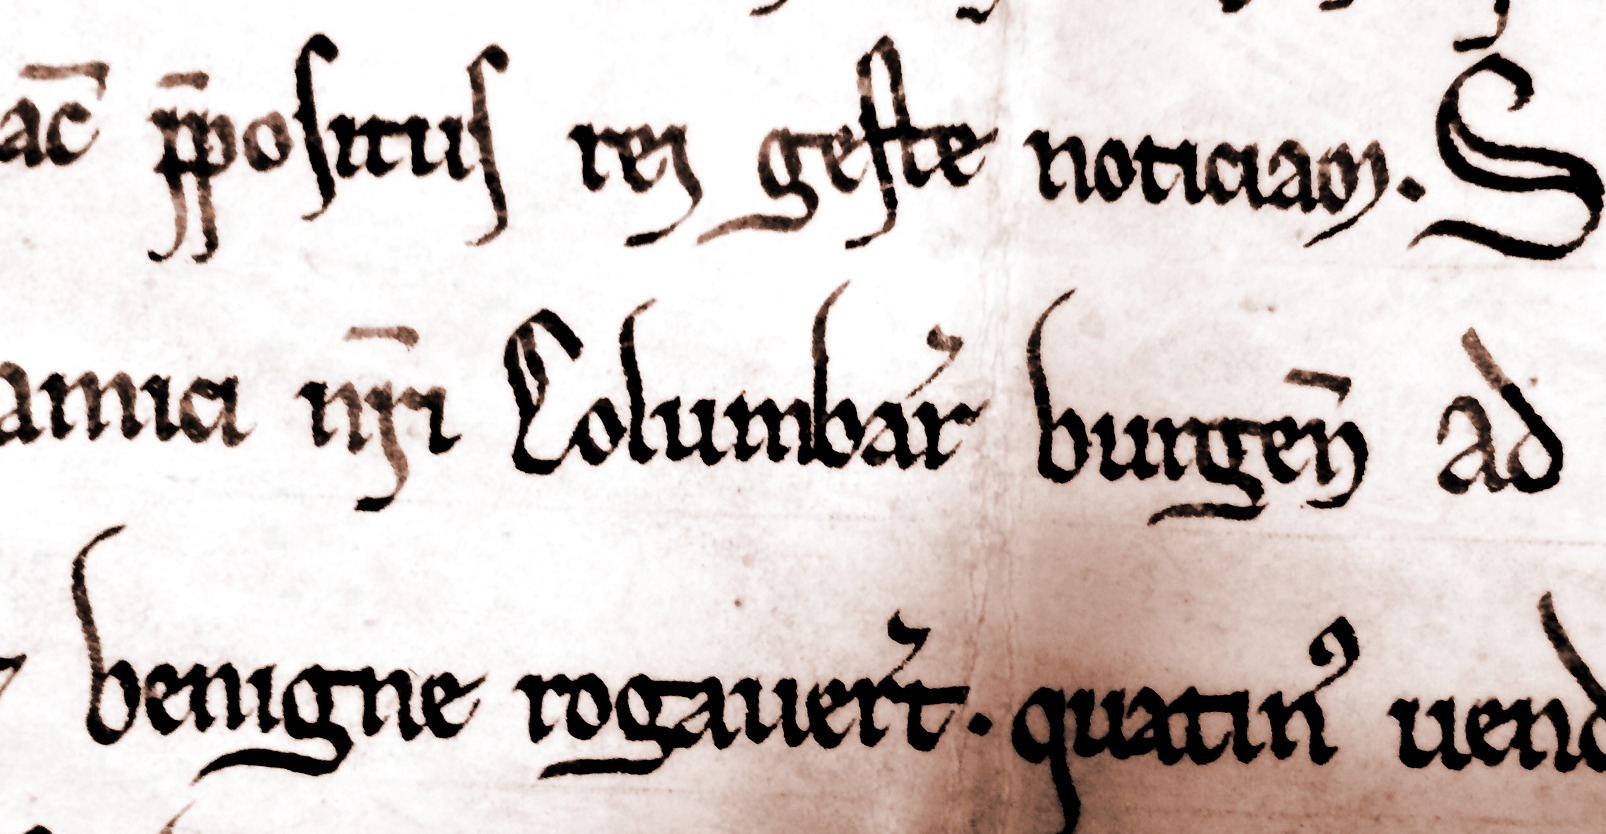 ac̄ p̄positus rei geste noticiam. S
amici nr̄i Columbar̉ burgen̄ ad
benigne rogauer̉t. quatin⁹ uend